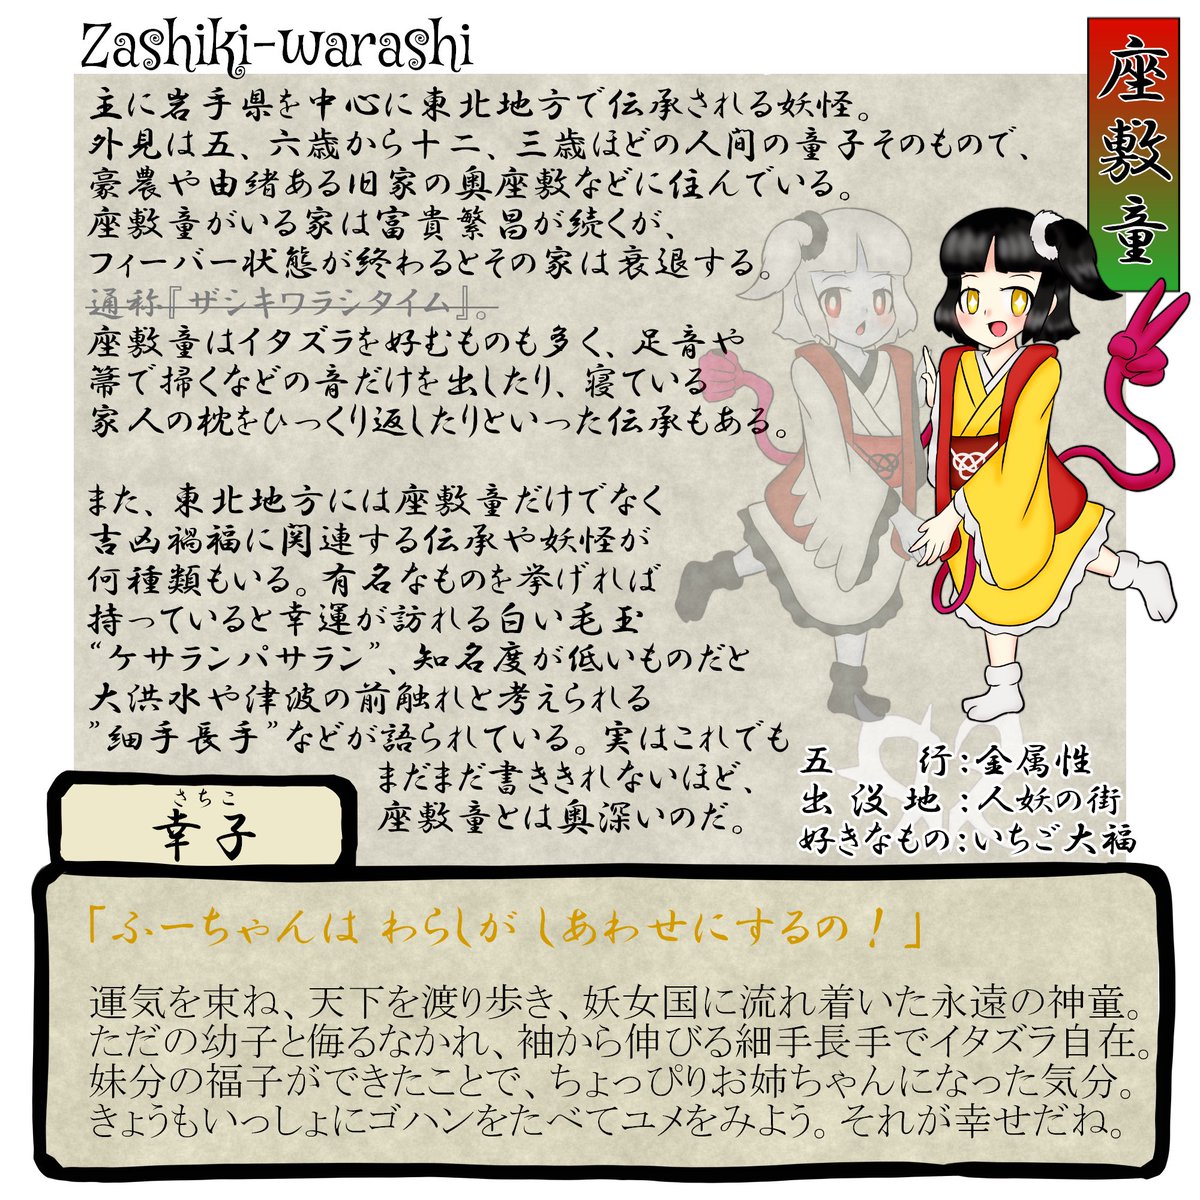 Zashiki-warashi
座敷童
主に岩手県を中心に東北地方で伝承される妖怪。
外見は五、六歳から十二、三歳ほどの人間の童子そのもので、
豪農や由緒ある旧家の奥座敷などに住んでいる。
座敷童がいる家は富貴繁昌が続くが、
フィーバー状態が終わるとその家は衰退する。
通称『ザシキワラシタイム』。
座敷童はイタズラを好むものも多く、足音や
箒で掃くなどの音だけを出したり、寝ている
家人の枕をひっくり返したりといった伝承もある。
また、東北地方には座敷童だけでなく
吉凶禍福に関連する伝承や妖怪が
何種類もいる。有名なものを挙げれば
持っていると幸運が訪れる白い毛玉
“ケサランパサラン”、知名度が低いものだと
大洪水や津波の前触れと考えられる
”細手長手”などが語られている。実はこれでも
まだまだ書ききれないほど、
座敷童とは奥深いのだ。
五行:金属性
出没地:人妖の街
好きなもの:いちご大福
さちこ
幸子
「ふーちゃんは わらしが しあわせにするの！」
運気を束ね、天下を渡り歩き、妖女国に流れ着いた永遠の神童。
ただの幼子と侮るなかれ、袖から伸びる細手長手でイタズラ自在。
妹分の福子ができたことで、ちょっぴりお姉ちゃんになった気分。
きょうもいっしょにゴハンをたべてユメをみよう。それが幸せだね。